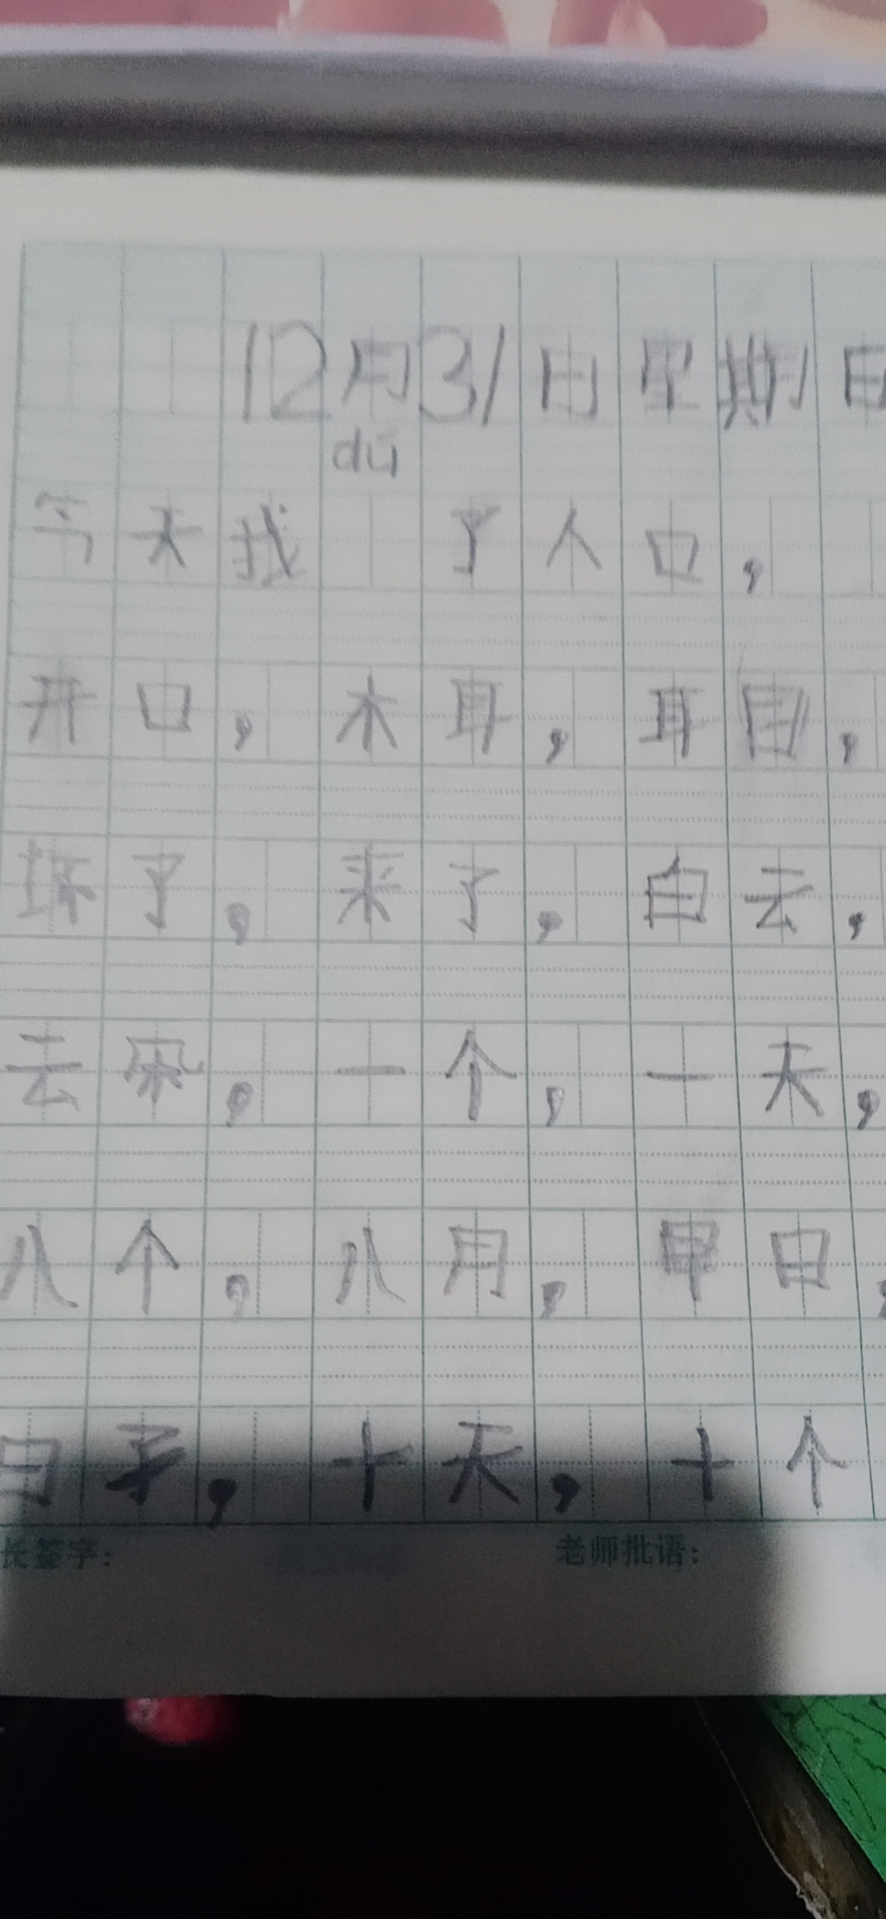 12月31日星期日
dú
今天我 了人口，
开口，木耳，耳目，
坏了，来了，白云，
去，一个，一天，
八个，八月，日，
日子，十天，十个
长签字： 老师批语：